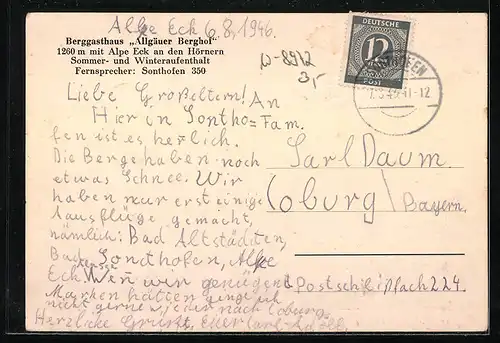 Alpe Eck 6.8.1946.
Berggasthaus „Allgäuer Berghof"
1260 m mit Alpe Eck an den Hörnern
Sommer- und Winteraufenthalt
Fernsprecher: Sonthofen 350
DEUTSCHE
12
POST
11-12
Liebe Großeltern! An
Hier in Sontho= Fam.
fen ist es herlich.
Die Berge haben noch
etwas Schnee. Wir
haben nur erst einige
Ausflüge gemacht,
nämlich: Bad
Sonthofen, Alpe
Eck. Wenn wir genügend
Marken hätten ginge ich
nicht gerne wieder nach Coburg.
Herzliche Grüße, Euer
Carl Daum
Coburg/
Bayern.
Postschließfach 224.